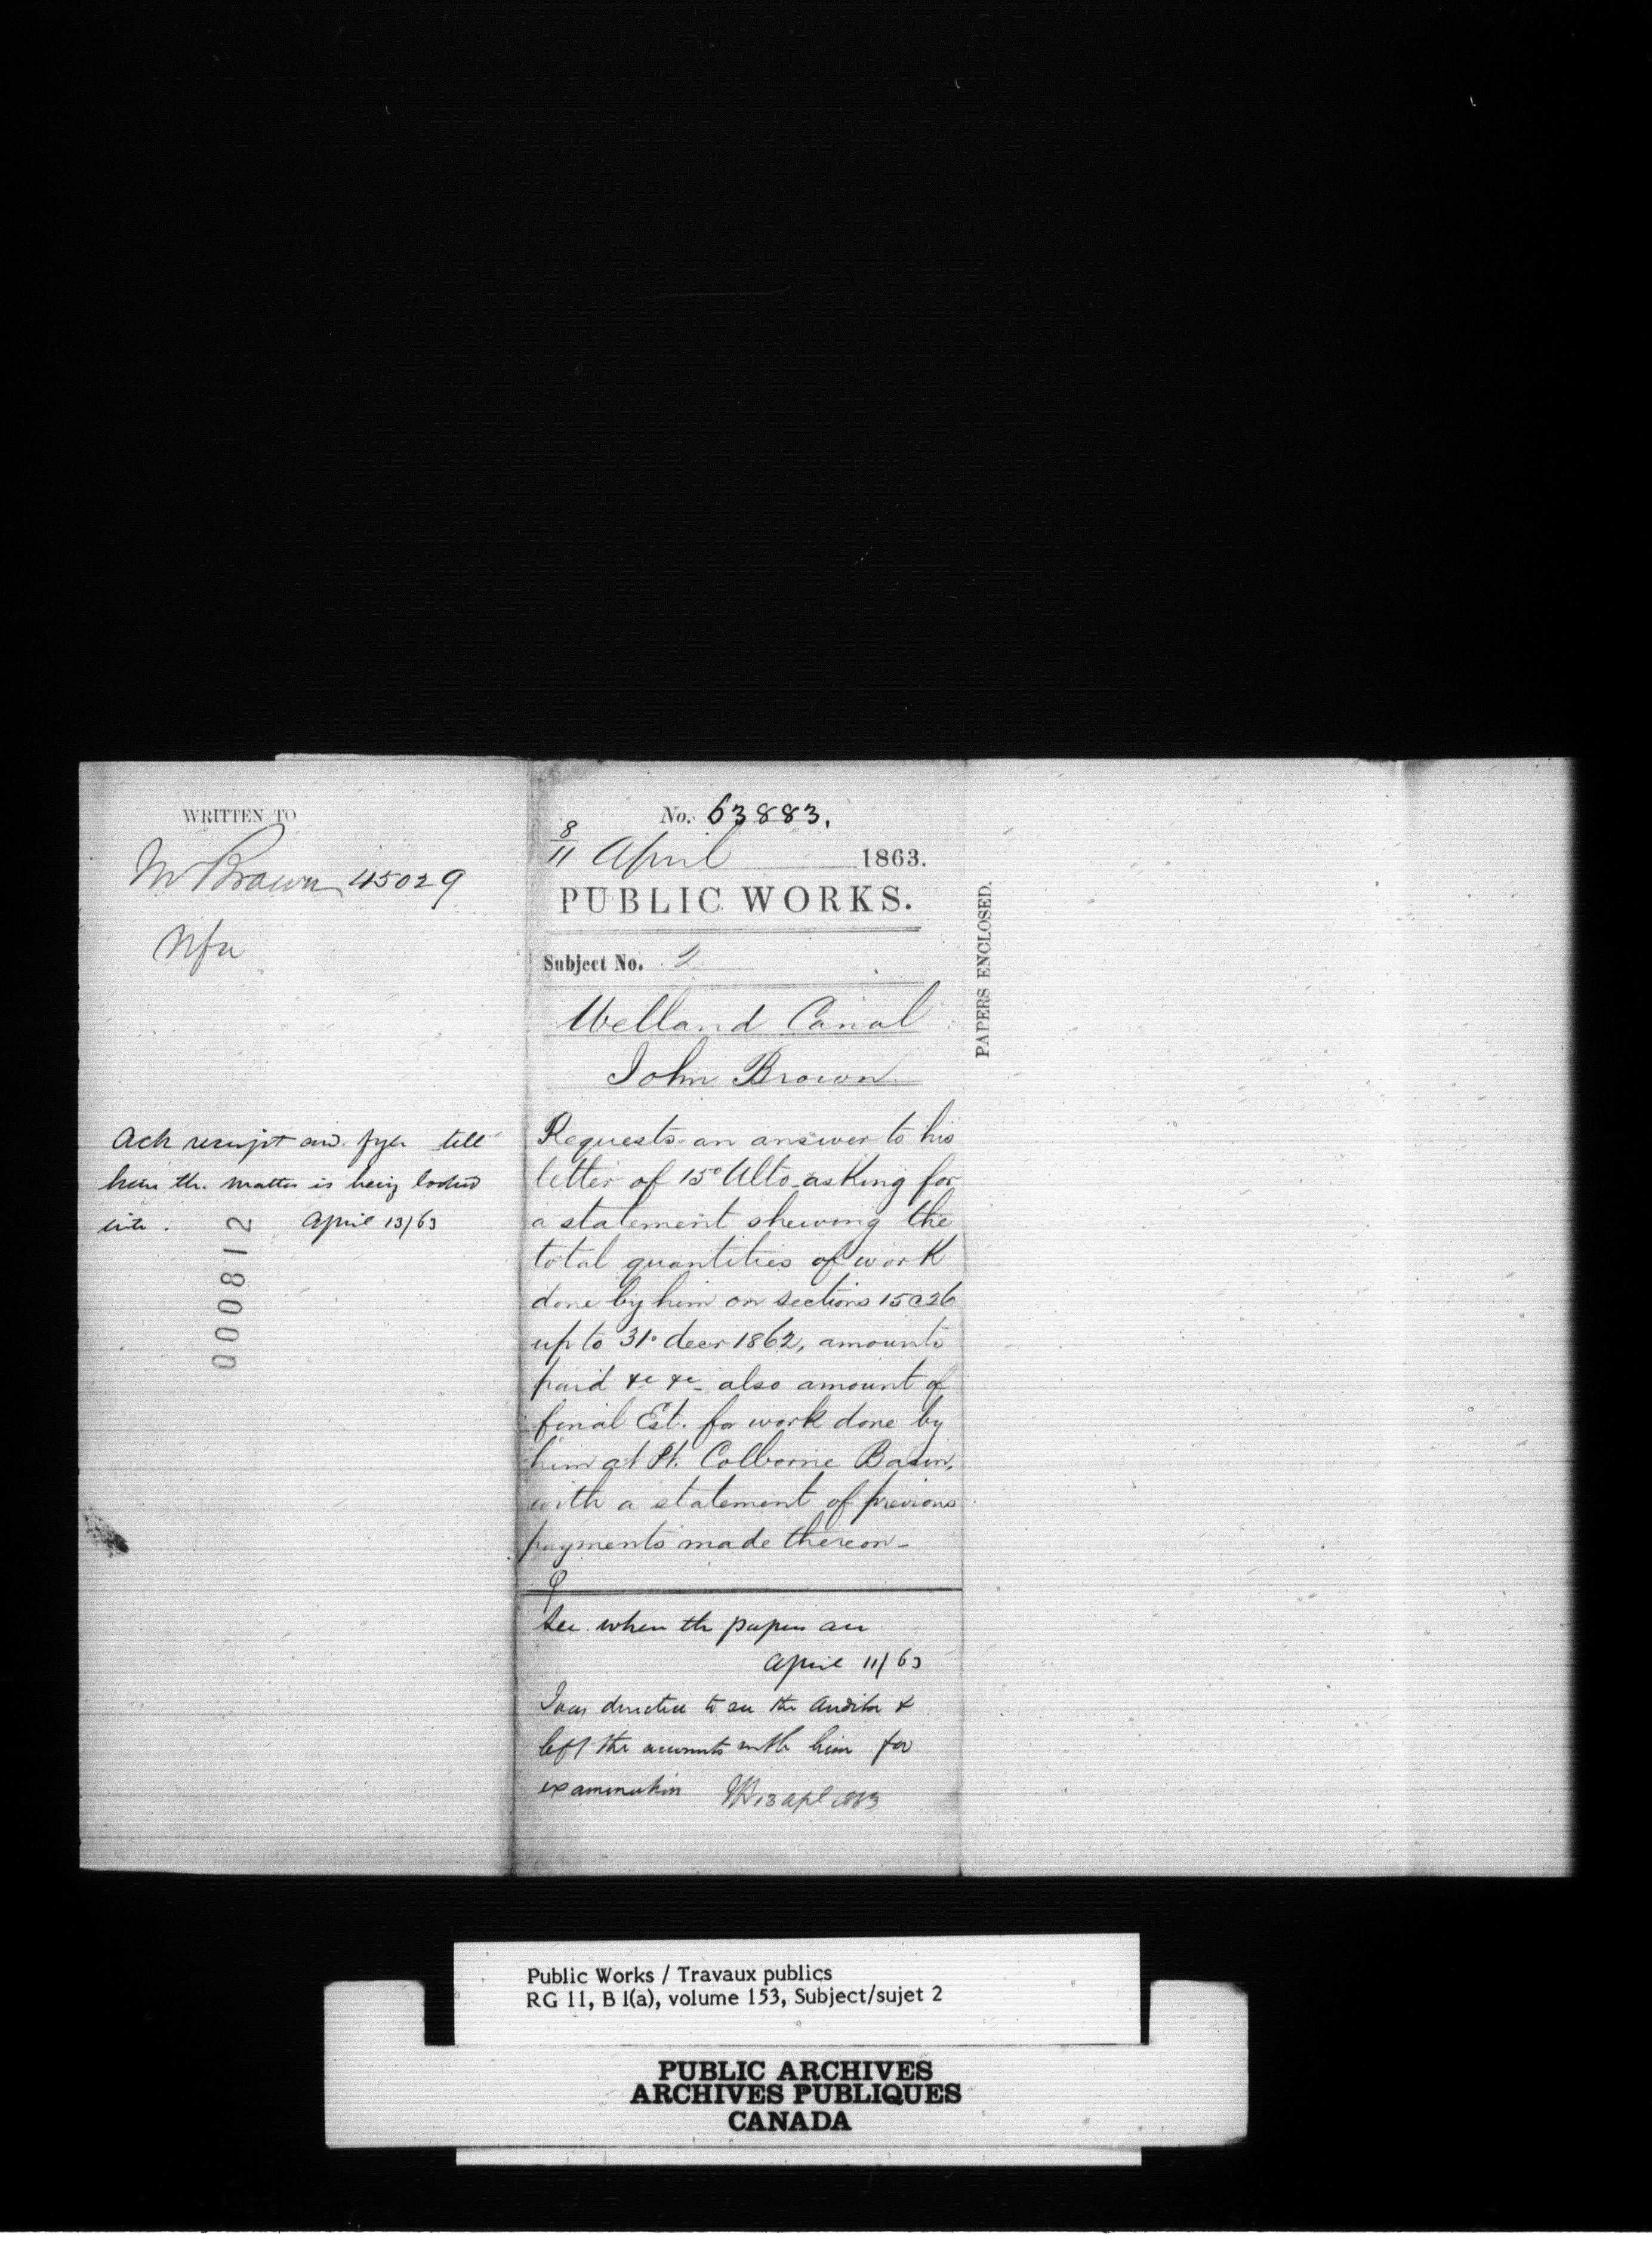 WRITTEN TO
Mr Brown 45029
Nfa
Ack receipt and till
him the matter is being looked
into. April 13/63
000812
No. 63883.
8/11 April 1863.
PUBLIC WORKS.
Subject No. 2
Welland Canal
John Brown
Requests an answer to his
letter of 15° Ulto asking for
a statement shewing the
total quantities of work
done by him on sections 15 & 26
up to 31° decr 1862, amounts
paid &c &c also amount of
final Est. for work done by
him at Pt. Colborne Basin,
with a statement of previous
payments made thereon_
See where the papers are
April 11/63
I was directed to see the Auditor &
left the accounts with him for
examination 13 apl 1863
PAPERS ENCLOSED.
Public Works / Travaux publics
RG 11, B 1(a), volume 153, Subject/sujet 2
PUBLIC ARCHIVES
ARCHIVES PUBLIQUES
CANADA